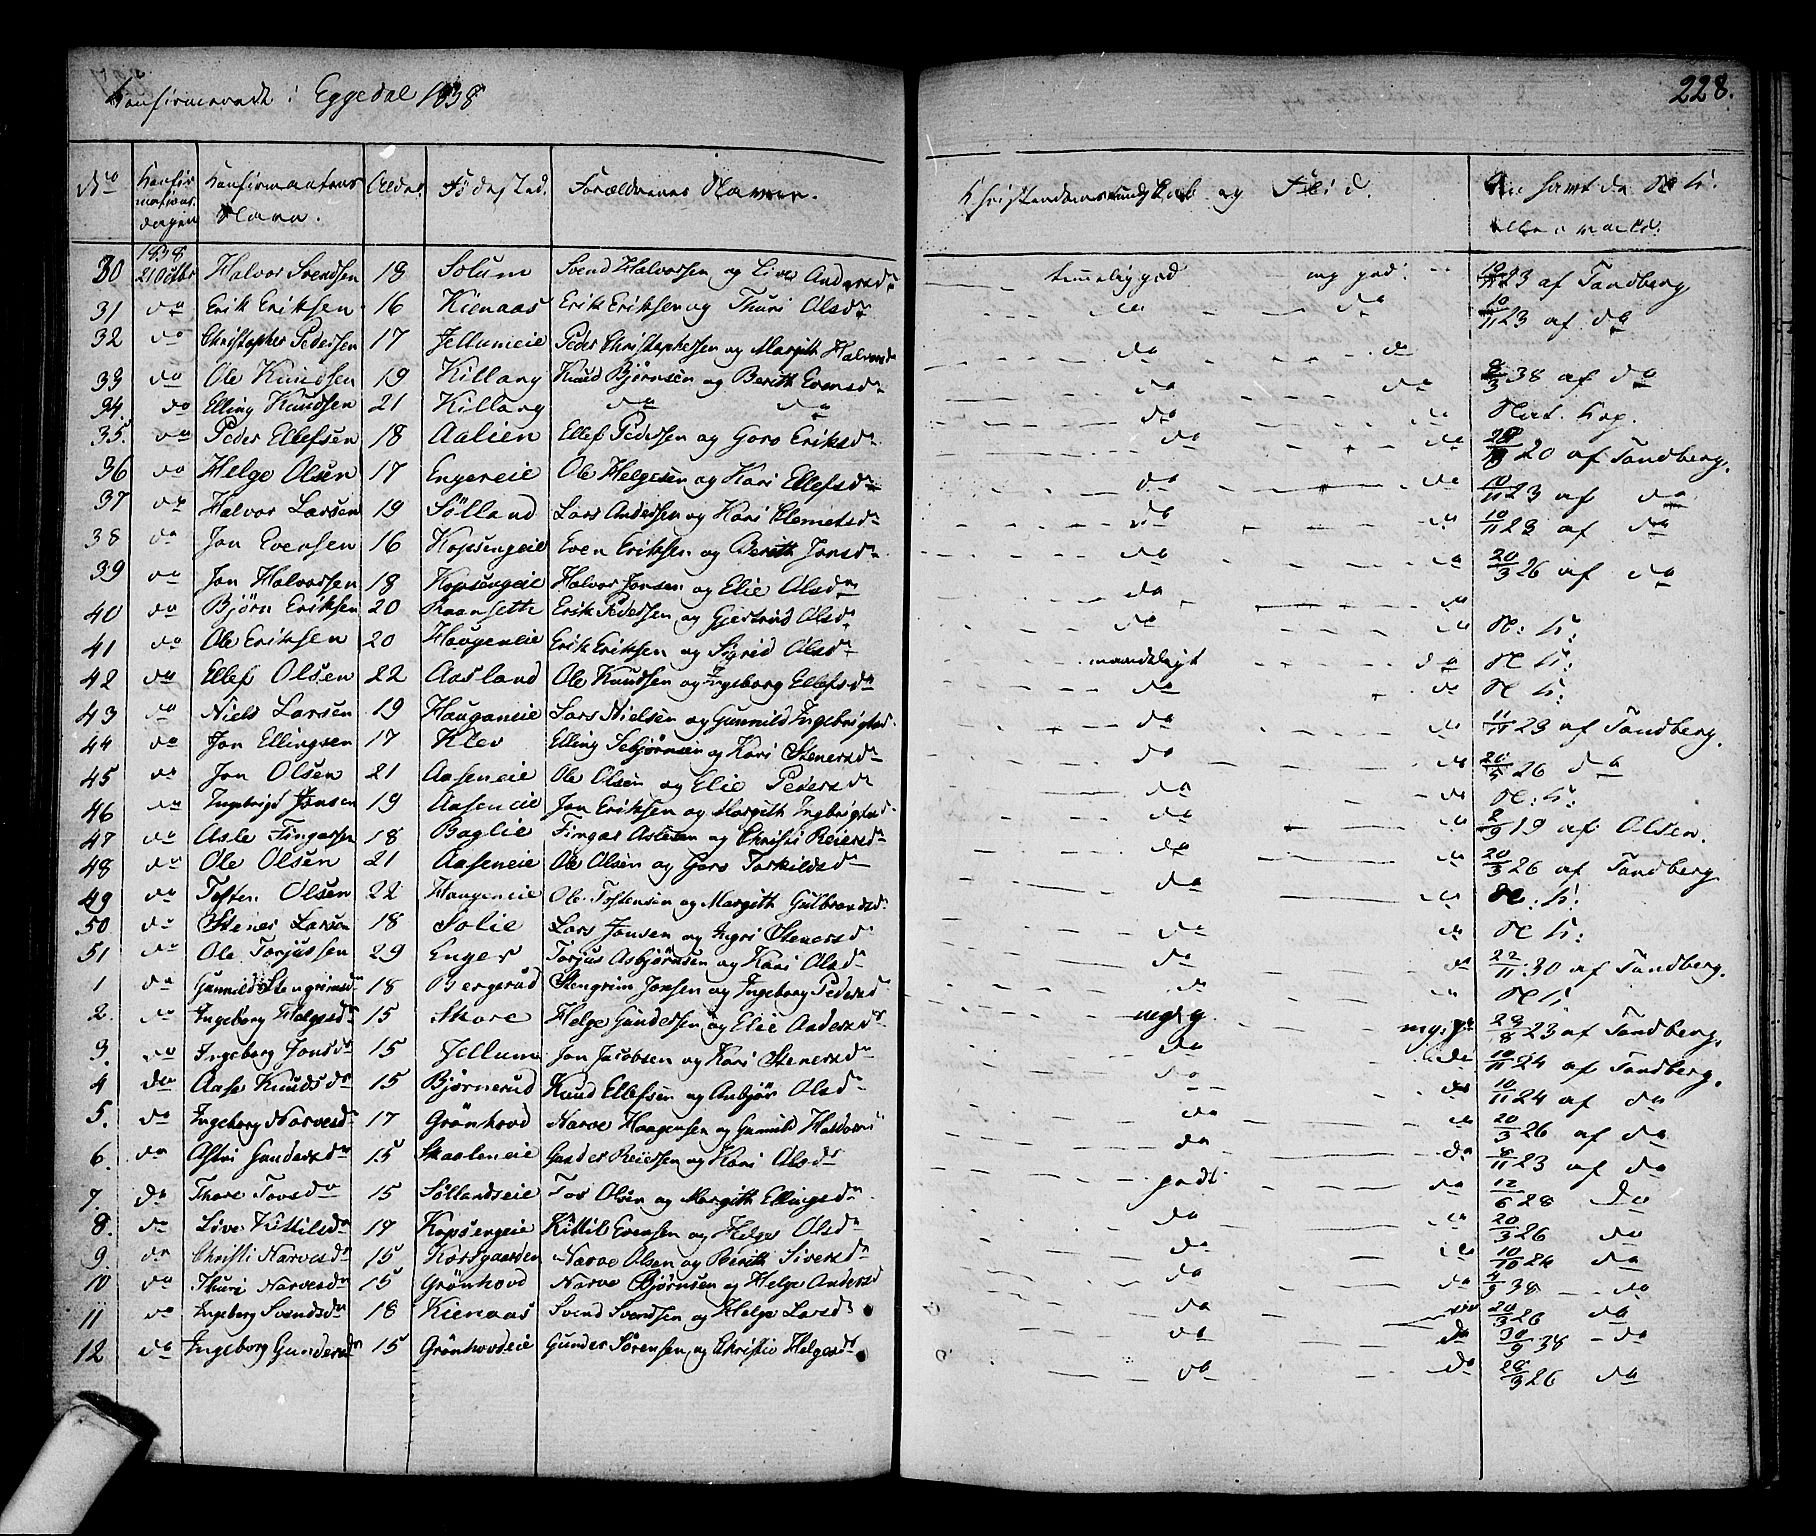 Konfirmerede i Eggedal 1838
228.
No Konfirmations-dagen Konfirmantens Navn. Alder Fødested. Forældrenes Navne. Khristendomskundskab og Flid.
30 1838 21 Octbr Halvor Svendsen 18 Solum Svend Halvorsen og Live Andersdr temmelig god og god. 23 af Tandberg
31 do Erik Eriksen 16 Kienaas Erik Eriksen og Thuri Olsdr do do 10/11 23 af do
32 do Christopher Pedersen 17 Jellumeie Peder Christophersen og Margith Halvorsdr do do
33 do Ole Knudsen 19 Killang Knud Bjørnsen og Berith Evensdr do do 8/3 38 af do
34. do Elling Knudsen 21 Killang do do do do Nat. Kop.
35. do Peder Ellefsen 18 Aalien Ellef Pedersen og Goro Eriksdr do do 20 af Tandberg.
36 do Helge Olsen 17 Engereie Ole Helgesen og Kari Ellefsdr do do 10/11 23 af do
37 do Halvor Larsen 19 Sølland Lars Andersen og Kari Clemetsdr do do 10/11 23 af do
38 do Jon Evensen 16 Kopsengeie Even Eriksen og Berith Jonsdr do do 20/3 26 af do
39 do Jon Halvorsen 18 Kopsengeie Halvor Jonsen og Elie Olsdr do do
40 do Bjørn Eriksen 20 Raansette Erik Pedersen og Gjertrud Olsdr do do N: K:
41 do Ole Eriksen 20 Haugeneie Erik Eriksen og Sigrid Olsdr maadeligt do N K:
42 do Ellef Olsen 22 Aasland Ole Knudsen og Ingeborg Ellefsdr do do N K:
43 do Niels Larsen 19 Haugeneie Lars Nielsen og Gunnild Ingebrigtsd. do do 11/11 23 af Tandberg.
44 do Jon Ellingsen 17 Klev Elling Sebjørnsen og Kari Stenersdr do do 26 do
45 do Jon Olsen 21 Aaseneie Ole Olsen og Elie Pedersdr do do N: K:
46 do Ingebrigt Jonsen 19 Aaseneie Jon Eriksen og Margith Ingebrigtsd. do do 19 af Olsen.
47 do Asle Fingarsen 18 Baglie Fingar Aslesen og Christi Reiersdr do do 20/3 26 af Tandberg
48 do Ole Olsen 21 Aaseneie Ole Olsen og Goro Torkildsdr do do N: K:
49 do Tosten Olsen 22 Haugeneie Ole Tostensen og Margith Gulbrandsdr do do N K:
50 do Stener Larsen 18 Solie Lars Jonsen og Ingri Stenersdr do do 22/11 30 af Tandberg.
51 do Ole Torjussen 29 Enger Torjus Asbjørnsen og Kari Olsdr do do N K
1 do Gunnild Stengrimsdr 18 Bergerud Stengrim Jonsen og Ingeborg Pedersd
2. do Ingeborg Helgesdr 15 Skare Helge Gundersen og Elie Andersdr meg: g. 23 af Tandberg.
3. do Ingeborg Jonsdr 15 Jellum Jon Jacobsen og Kari Stenersdr do do 10/11 24 af Tandberg.
4 do Aase Knudsdr 15 Bjørnerud Knud Ellefsen og Anbjør Olsdr do do 10/11 24 af do
5. do Ingeborg Narvesdr 17 Grønhovd Narve Haagensen og Gunnild do do 20/3 26 af do
6. do Astri Gundersdr 15 Skaaleneie Gunder Reiersen og Kari Olsdr do do 8/11 23 af do
7. do Thore Tovsdr 15 Søllandseie Tov Olsen og Margith Ellingsdr godt do 12/6 28 do
8. do Live Kittilsdr 19 Kopsengeie Kittil Evensen og Helge Olsdr do do 20/3 26 do
9. do Christi Narvesdr 15 Korsgaarden Narve Olsen og Berith Siversdr do do 10/10 24 do
10 do Thuri Narvesdr 15 Grønhovd Narve Bjørnsen og Helge Andersd do do 38 do
11 do Ingeborg Svendsdr 18 Kienaas Svend Svendsen og Helge Larsd do 20/3 26 do
12 do Ingeborg Gundersdr 15 Grønhovdseie Gunder Sørensen og Christie Helgesdr do do 30/9 38 do
do do 26 do